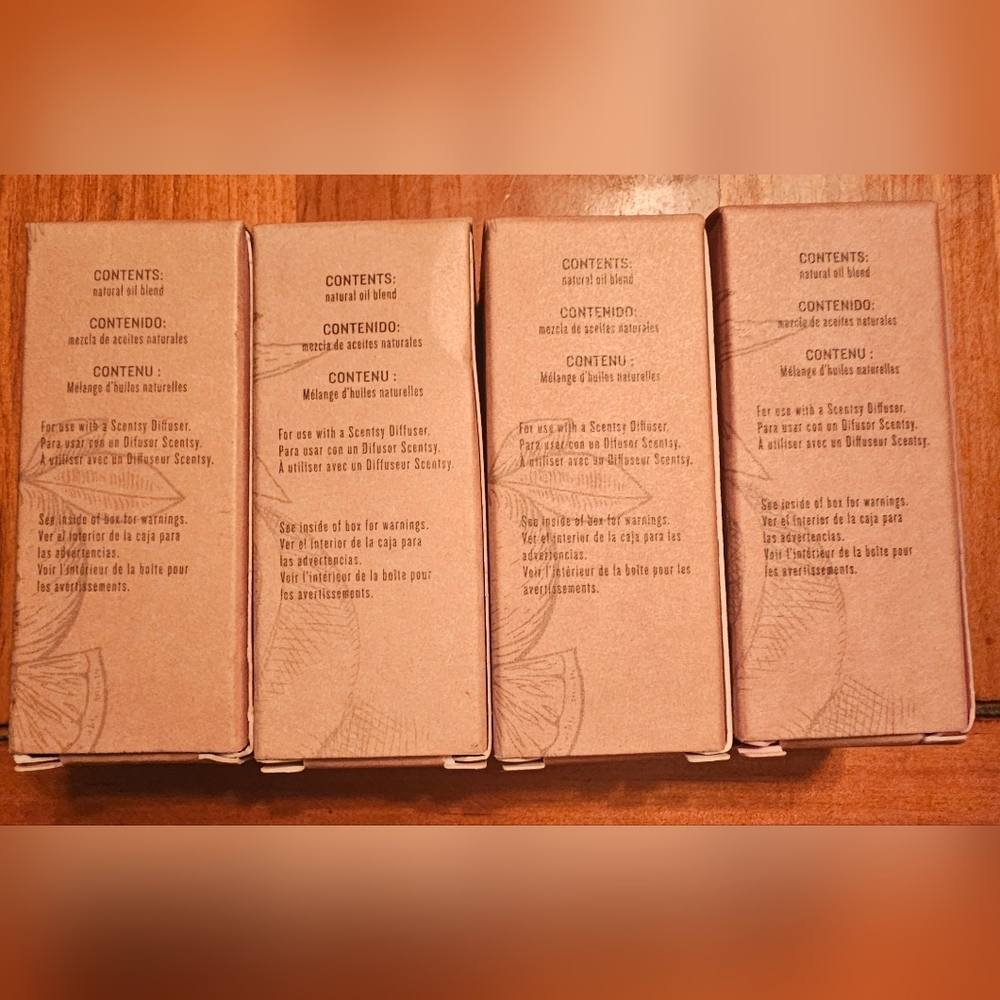 CONTENTS:
natural oil blend
CONTENIDO:
mezcla de aceites naturales
CONTENU :
Mélange d'huiles naturelles
For use with a Scentsy Diffuser.
Para usar con un Difusor Scentsy.
À utiliser avec un Diffuseur Scentsy.
See inside of box for warnings.
Ver el interior de la caja para
las advertencias.
Voir l'intérieur de la boîte pour
les avertissements.
CONTENTS:
natural oil blend
CONTENIDO:
mezcla de aceites naturales
CONTENU :
Mélange d'huiles naturelles
For use with a Scentsy Diffuser.
Para usar con un Difusor Scentsy.
À utiliser avec un Diffuseur Scentsy.
See inside of box for warnings.
Ver el interior de la caja para
las advertencias.
Voir l'intérieur de la boîte pour
les avertissements.
CONTENTS:
natural oil blend
CONTENIDO:
mezcla de aceites naturales
CONTENU :
Mélange d'huiles naturelles
For use with a Scentsy Diffuser.
Para usar con un Difusor Scentsy.
À utiliser avec un Diffuseur Scentsy.
See inside of box for warnings.
Ver el interior de la caja para las
advertencias.
Voir l'intérieur de la boîte pour les
avertissements.
CONTENTS:
natural oil blend
CONTENIDO:
mezcla de aceites naturales
CONTENU :
Mélange d'huiles naturelles
For use with a Scentsy Diffuser.
Para usar con un Difusor Scentsy.
À utiliser avec un Diffuseur Scentsy.
See inside of box for warnings.
Ver el interior de la caja para
las advertencias.
Voir l'intérieur de la boîte pour
les avertissements.